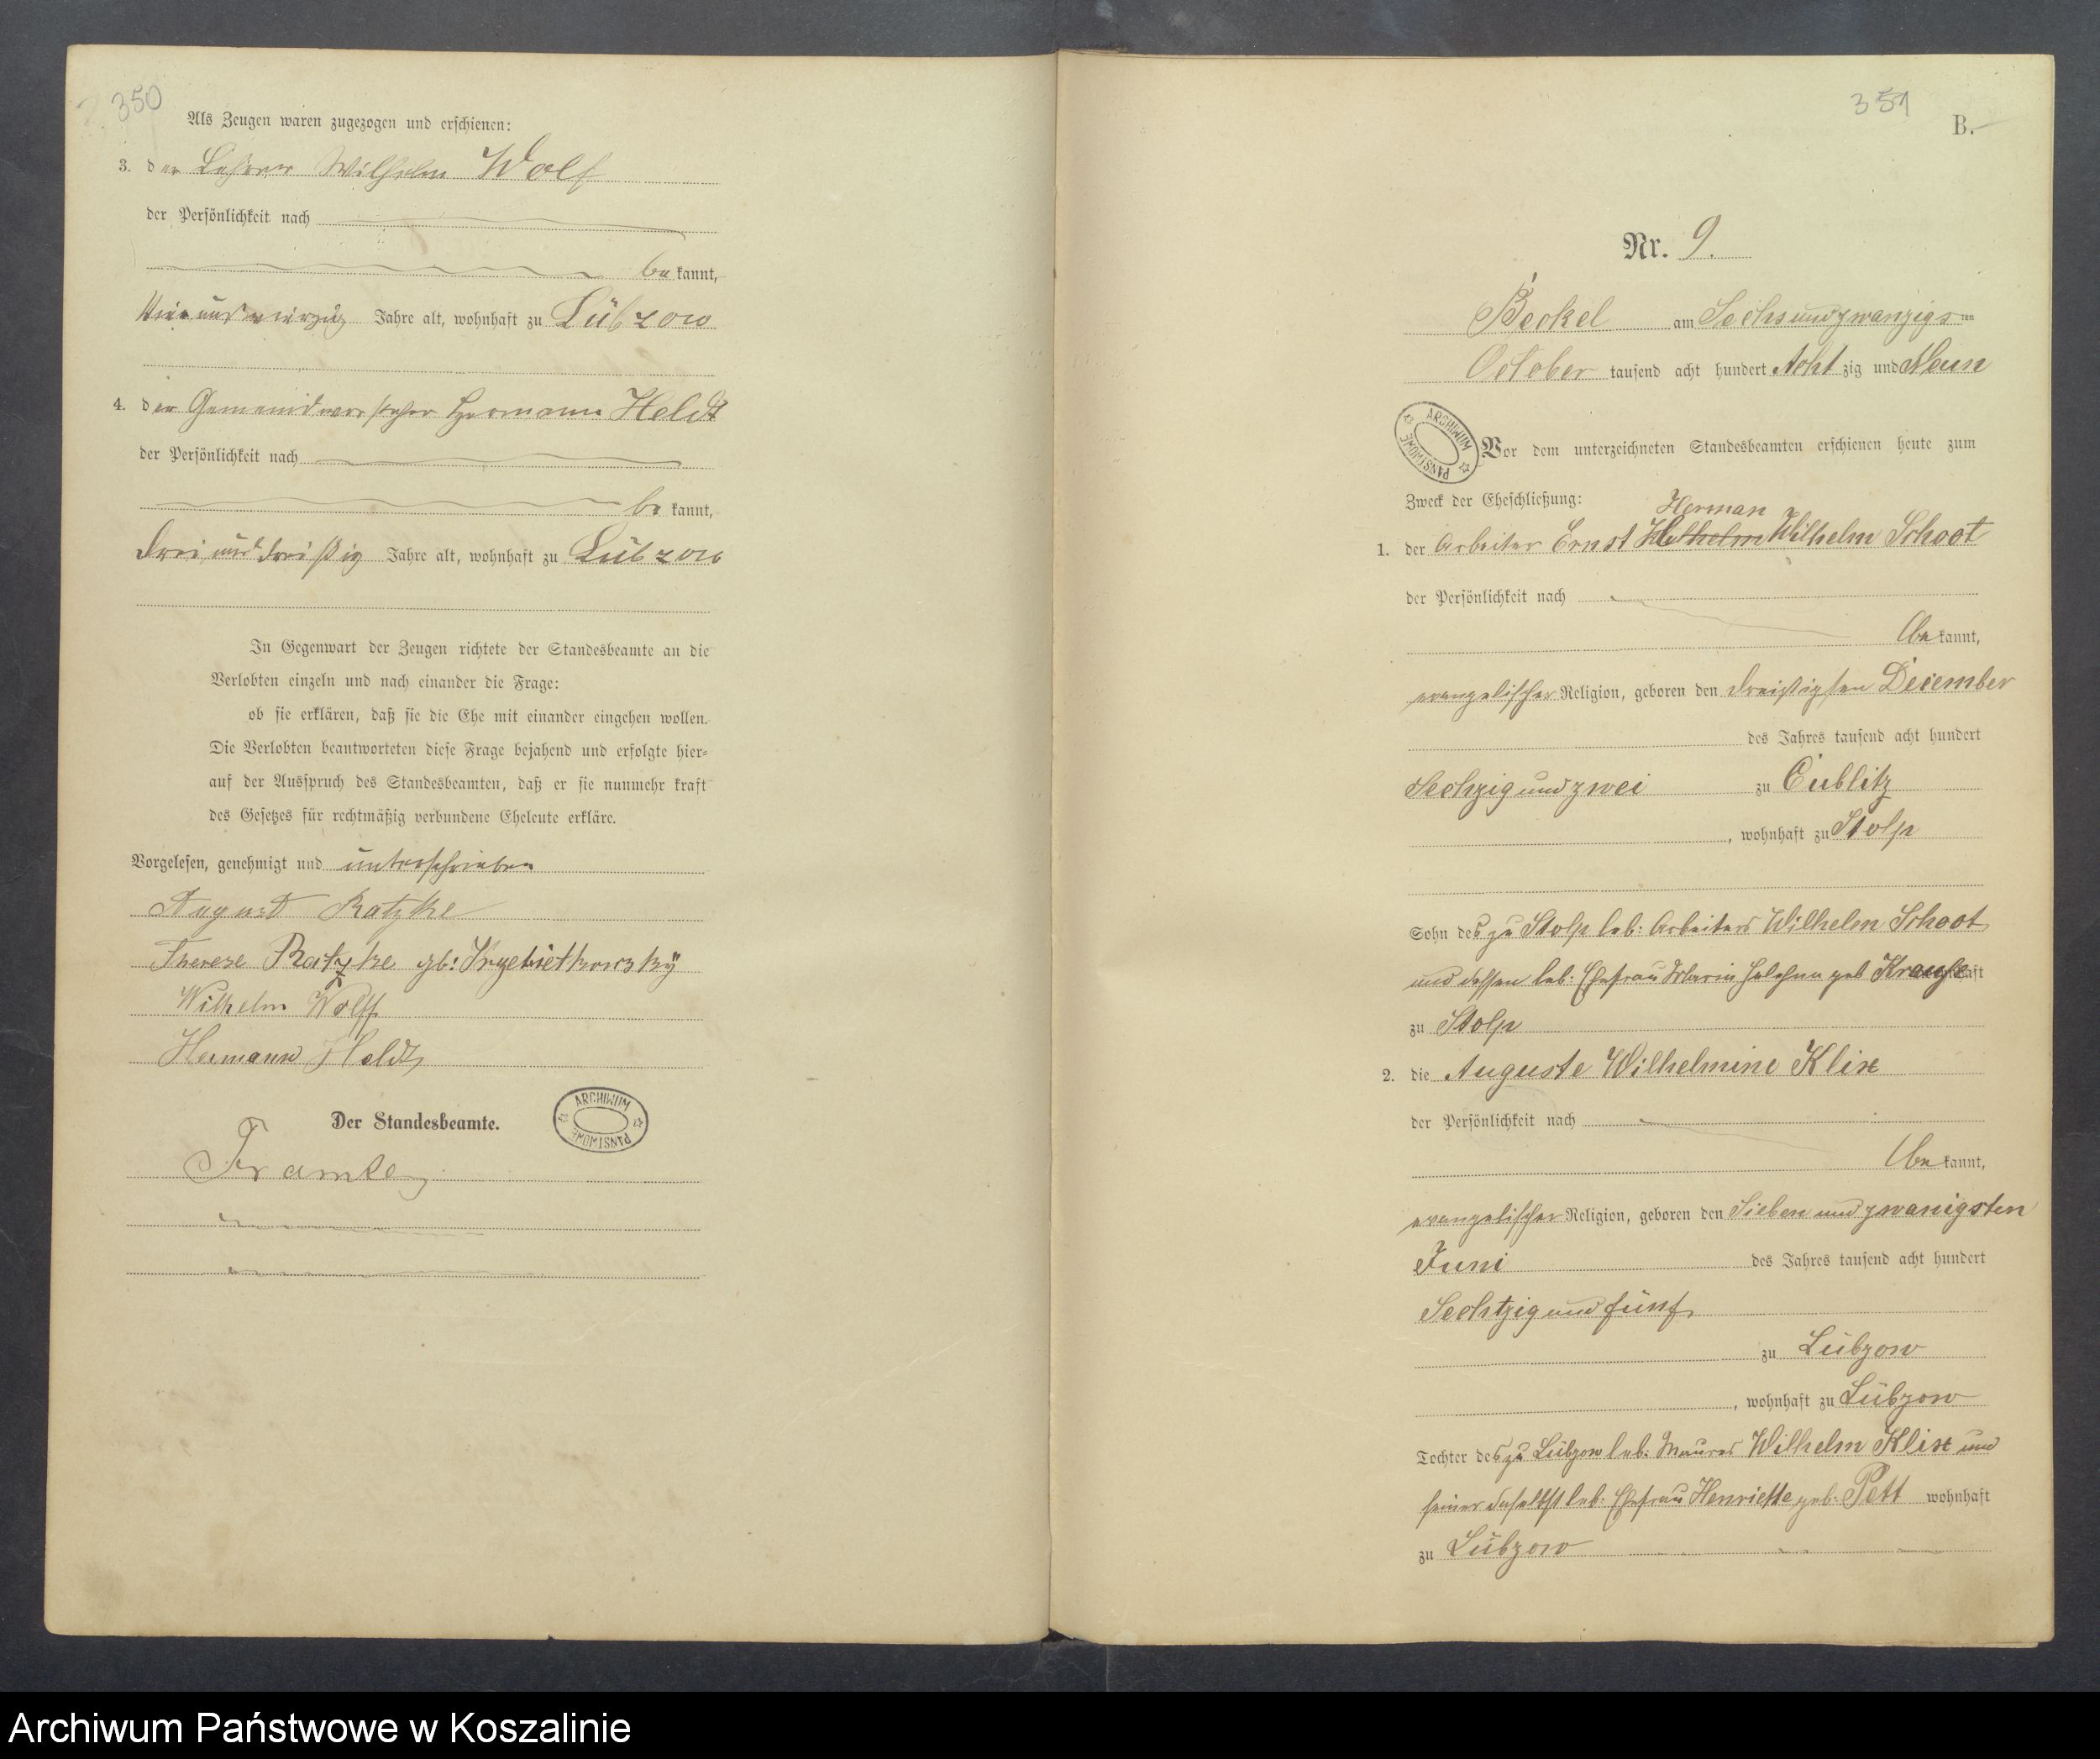 350
Als Zeugen waren zugezogen und erschienen:
3. der Lehrer Wilhelm Wolf
der Persönlichkeit nach
bekannt,
Vier und vierzig Jahre alt, wohnhaft zu Lübzow
4. der Gemeindevorsteher Hermann Heldt
der Persönlichkeit nach
bekannt,
drei und dreißig Jahre alt, wohnhaft zu Lübzow
In Gegenwart der Zeugen richtete der Standesbeamte an die
Verlobten einzeln und nach einander die Frage:
ob sie erklären, daß sie die Ehe mit einander eingehen wollen.
Die Verlobten beantworteten diese Frage bejahend und erfolgte hier-
auf der Ausspruch des Standesbeamten, daß er sie nunmehr kraft
des Gesetzes für rechtmäßig verbundene Eheleute erkläre.
Vorgelesen, genehmigt und unterschrieben
August Ratzke
Therese Ratzke gb:
Wilhelm Wolff
Hermann Heldt
Der Standesbeamte.
ARCHIWUM PAŃSTWOWE
Framke
351
B.
Nr. 9.
Beckel am Sechsundzwanzigsten
October tausend acht hundert Achtzig und Neun
ARCHIWUM PAŃSTWOWE
Vor dem unterzeichneten Standesbeamten erschienen heute zum
Zweck der Eheschließung:
Herman
1. der Arbeiter Ernst Wilhelm Schoot
der Persönlichkeit nach
bekannt,
evangelischer Religion, geboren den dreißigsten December
des Jahres tausend acht hundert
Sechzig und zwei zu Cublitz
, wohnhaft zu Stolp
Sohn des zu Stolp leb: Arbeiters Wilhelm Schoot
und dessen leb: Ehefrau Marie geb Krause
zu Stolp
2. die Auguste Wilhelmine Klix
der Persönlichkeit nach
bekannt,
evangelischer Religion, geboren den Sieben und zwanigsten
Juni des Jahres tausend acht hundert
Sechtzig und fünf
zu Lübzow
, wohnhaft zu Lübzow
Tochter des zu Lübzow leb: Maurer Wilhelm Klix und
seiner daselbst leb: Ehefrau Henriette geb: Pett wohnhaft
zu Lübzow
Archiwum Państwowe w Koszalinie